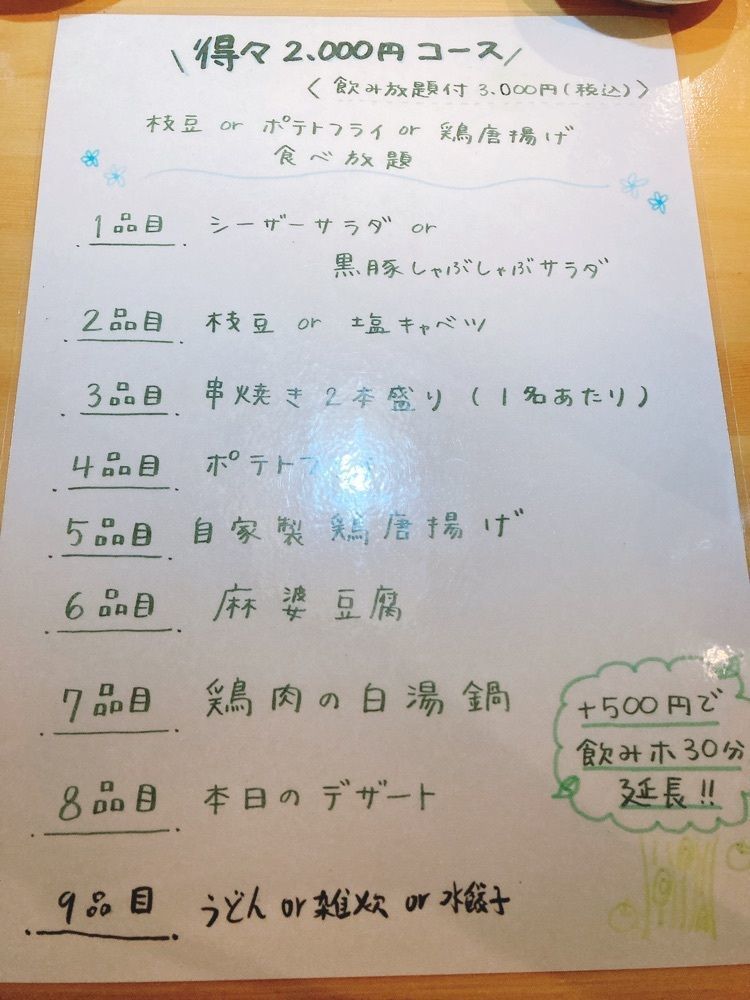 \ 得々 2.000円コース /
〈 飲み放題付 3.000円(税込) 〉
枝豆 or ポテトフライ or 鶏唐揚げ
食べ放題
1品目 シーザーサラダ or
黒豚しゃぶしゃぶサラダ
2品目 枝豆 or 塩キャベツ
3品目. 串焼き2本盛り (1名あたり)
4品目. ポテトフライ
5品目. 自家製鶏唐揚げ
6品目. 麻婆豆腐
7品目. 鶏肉の白湯鍋
8品目. 本日のデザート
9品目. うどんor雑炊 or 水餃子
+500円で
飲みホ30分
延長!!